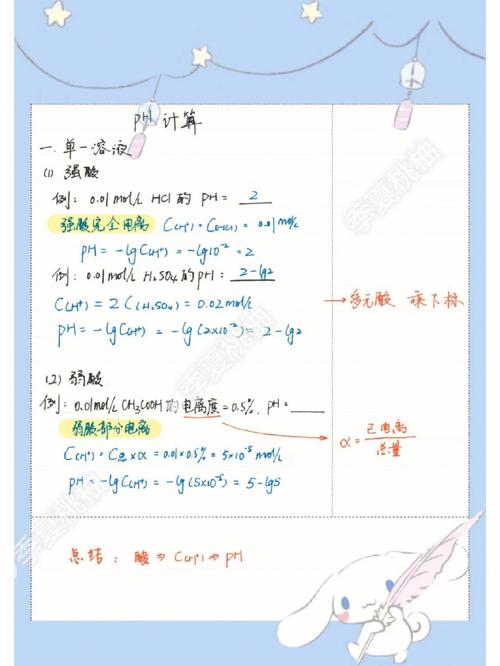 pH 计算
一.单一溶液
(1) 强酸
例：0.01mol/L HCl 的 pH = 2
强酸完全电离 C(H⁺) = C(HCl) = 0.01 mol/L
pH = -lgC(H⁺) = -lg10⁻² = 2
例：0.01mol/L H₂SO₄ 的 pH： 2-lg2
C(H⁺) = 2C(H₂SO₄) = 0.02mol/L → 多元酸 乘下标
pH = -lgC(H⁺) = -lg(2×10⁻²) = 2-lg2
(2) 弱酸
例：0.01mol/L CH₃COOH 的电离度=0.5%, pH = ____
弱酸部分电离
α = 已电离/总量
C(H⁺) = C总×α = 0.01×0.5% = 5×10⁻⁵ mol/L
pH = -lgC(H⁺) = -lg(5×10⁻⁵) = 5-lg5
总结：酸 ⇒ C(H⁺) ⇒ pH
季夏桃柚
季夏桃柚
季夏桃柚